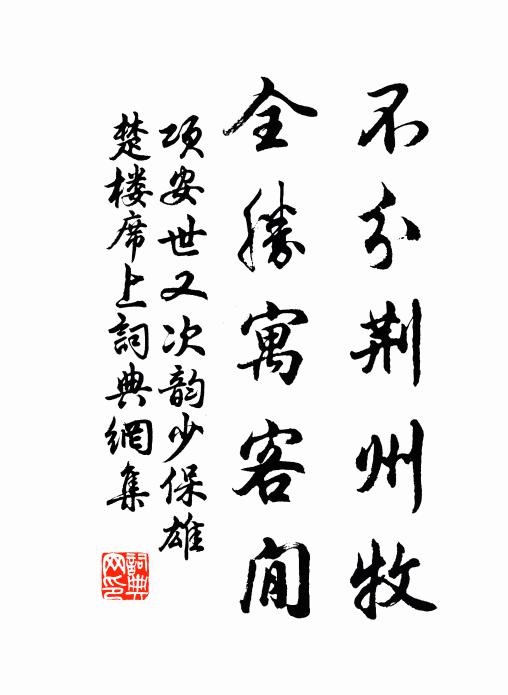 不分荆州牧
全勝寓客閒
項安世又次韵少保雄
楚楼席上詞典網集
詞典网印